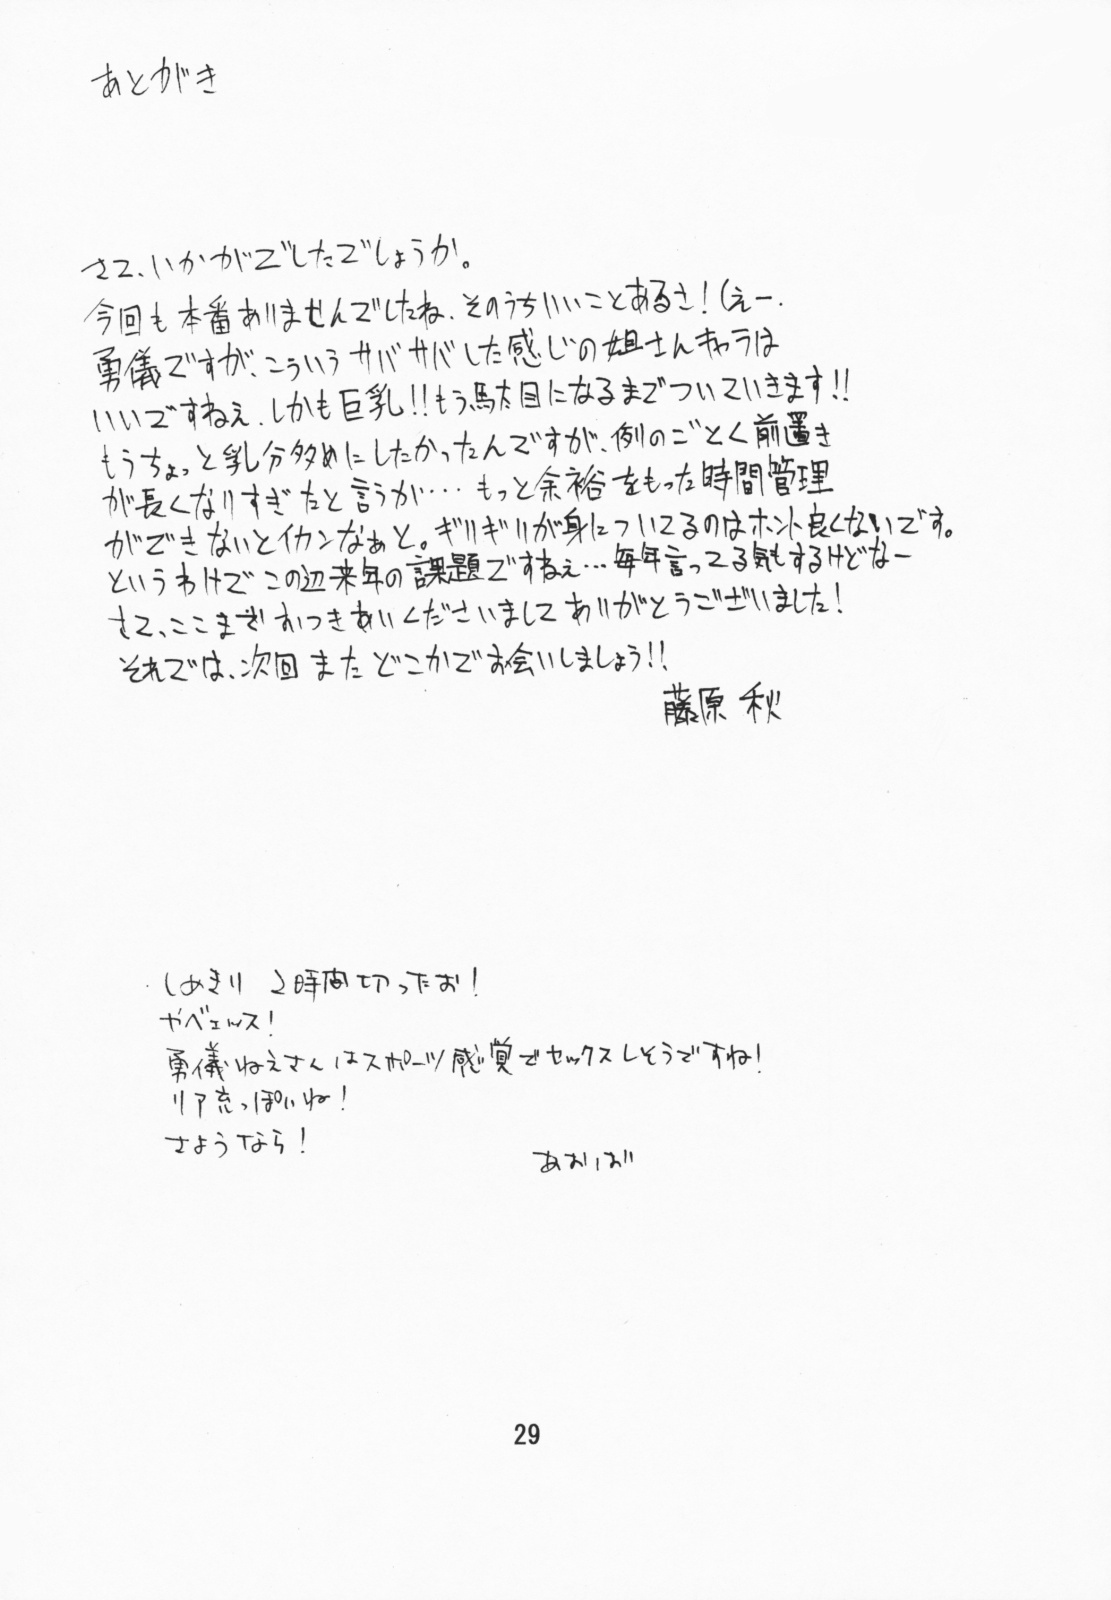 あとがき
さて、いかがでしたでしょうか。
今回も本番ありませんでしたね、そのうちいいことあるさ！（えー、
勇儀ですが、こういうサバサバした感じの姐さんキャラは
いいですねぇ、しかも巨乳!!もう駄目になるまでついていきます!!
もうちょっと乳分多めにしたかったんですが、例のごとく前置き
が長くなりすぎたと言うか…もっと余裕をもった時間管理
ができないとイカンなぁと。ギリギリが身についてるのはホント良くないです。
というわけでこの辺来年の課題ですねぇ…毎年言ってる気もするけどなー
さて、ここまでおつきあいくださいましてありがとうございました！
それでは、次回またどこかでお会いしましょう!!
藤原 秋
しめきり 2時間切ったお！
やべェッス！
勇儀ねえさんはスポーツ感覚でセックスしそうですね！
リア充っぽいね！
さようなら！
あおば
29